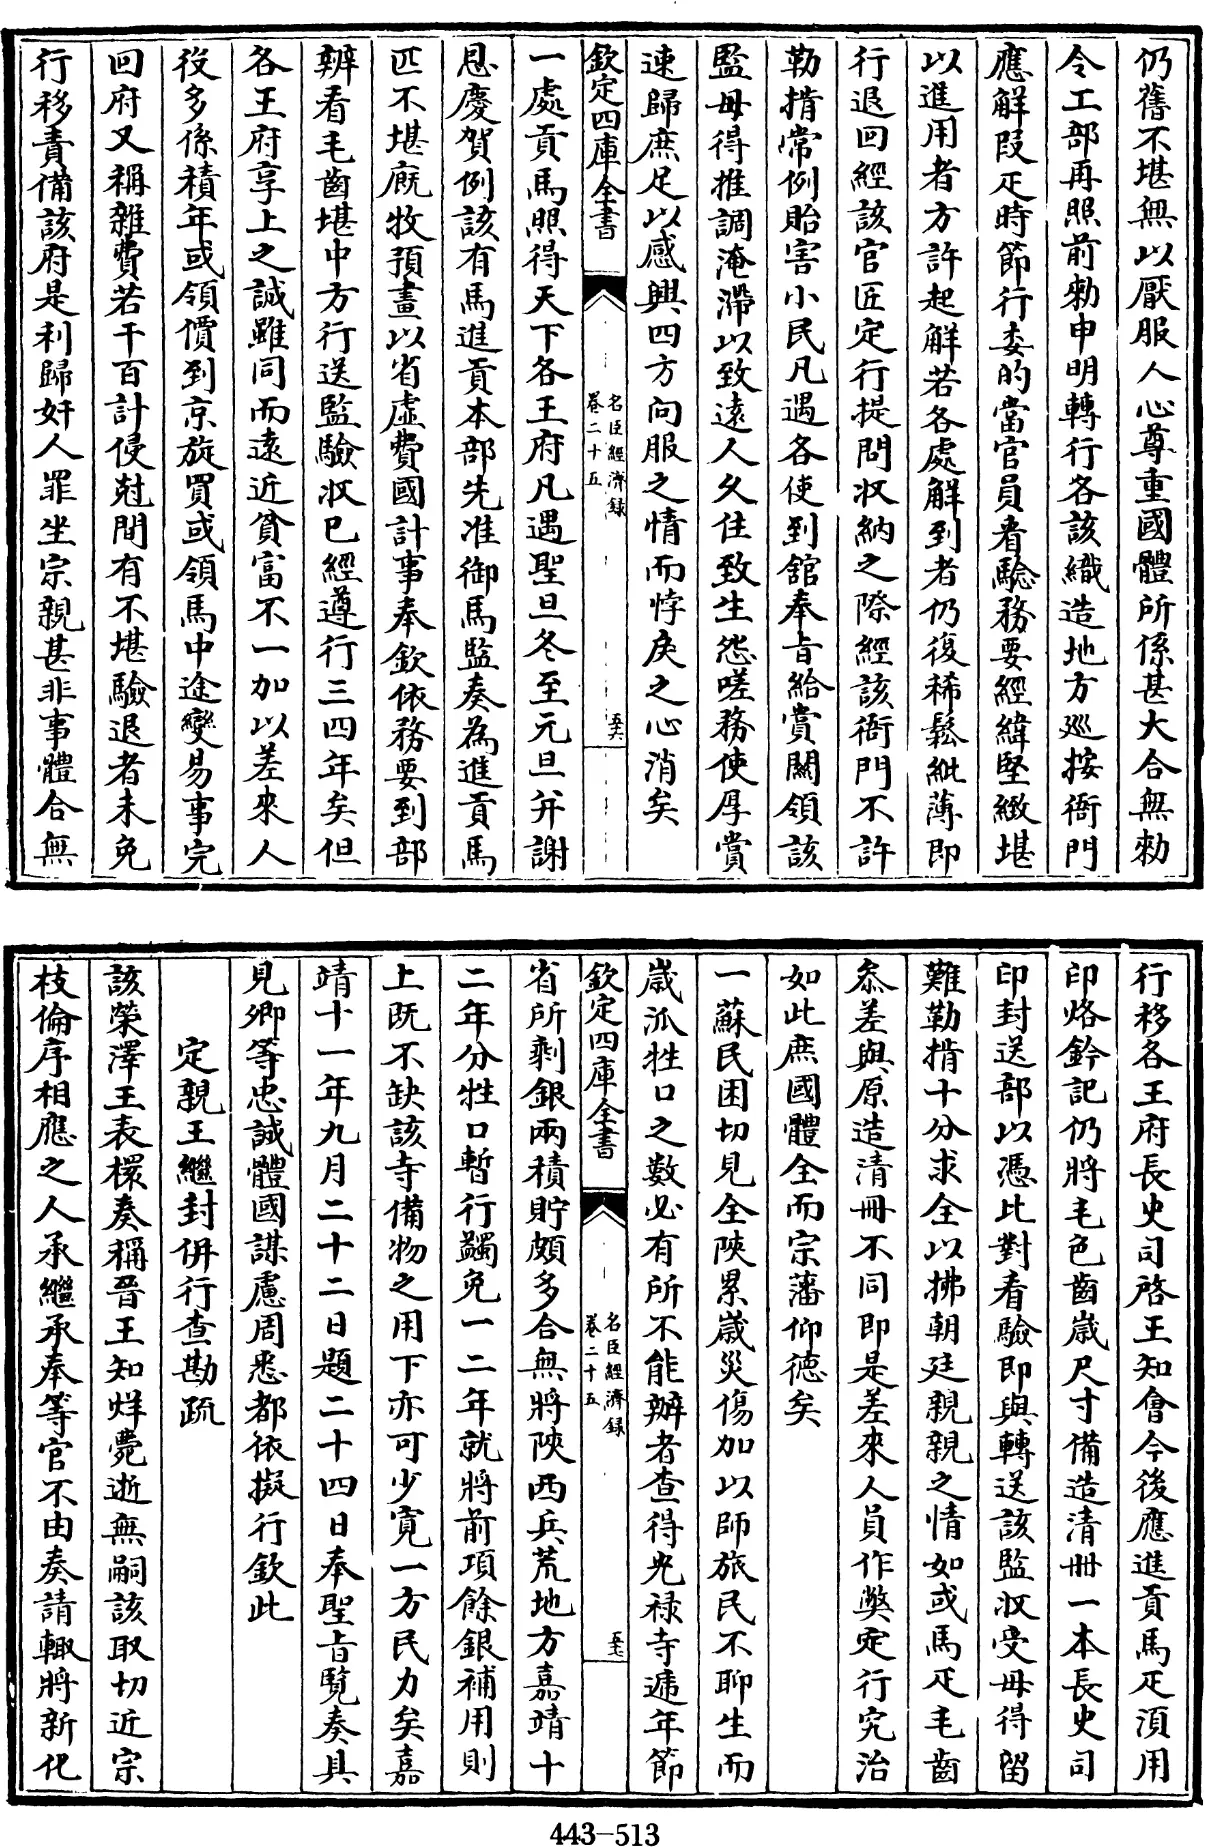 仍舊不堪無以厭服人心尊重國體所係甚大合無勅
令工部再照前勅申明轉行各該織造地方廵按衙門
應解叚疋時節行委的當官員看騐務要經緯堅緻堪
以進用者方許起解若各處解到者仍復稀鬆紕薄即
行退回經該官匠定行提問收納之際經該衙門不許
勒揹常例貽害小民凡遇各使到舘奉旨給賞關領該
監毋得推調淹滯以致遠人久住致生怨嗟務使厚賞
速歸庶足以感興四方向服之情而悖戾之心消矣
欽定四庫全書
名臣經濟録
卷二十五
五六
一處貢馬照得天下各王府凡遇聖旦冬至元旦并謝
恩慶賀例該有馬進貢本部先准御馬監奏為進貢馬
匹不堪廐牧預畫以省虛費國計事奉欽依務要到部
辨看毛齒堪中方行送監驗收已經遵行三四年矣但
各王府享上之誠雖同而遠近貧富不一加以差來人
役多係積年或領價到京旋買或領馬中途變易事完
回府又稱雜費若干百計侵尅間有不堪驗退者未免
行移責備該府是利歸奸人罪坐宗親甚非事體合無
行移各王府長史司啓王知會今後應進貢馬疋湏用
印烙鈐記仍將毛色齒歲尺寸備造清冊一本長史司
印封送部以憑比對看驗即與轉送該監收受毋得留
難勒揹十分求全以拂朝廷親親之情如或馬疋毛齒
叅差與原造清冊不同即是差來人員作獘定行究治
如此庶國體全而宗藩仰德矣
一蘇民困切見全陜累歲災傷加以師旅民不聊生而
歲派牲口之數必有所不能辦者查得光祿寺遞年節
欽定四庫全書
名臣經濟録
卷二十五
五七
省所剩銀兩積貯頗多合無將陜西兵荒地方嘉靖十
二年分牲口暫行蠲免一二年就將前項餘銀補用則
上既不缺該寺備物之用下亦可少寛一方民力矣嘉
靖十一年九月二十二日題二十四日奉聖旨覧奏具
見卿等忠誠體國謀慮周悉都依擬行欽此
定親王繼封併行查勘疏
該榮澤王表檈奏稱晉王知烊薨逝無嗣該取切近宗
枝倫序相應之人承繼承奉等官不由奏請輙將新化
443-513